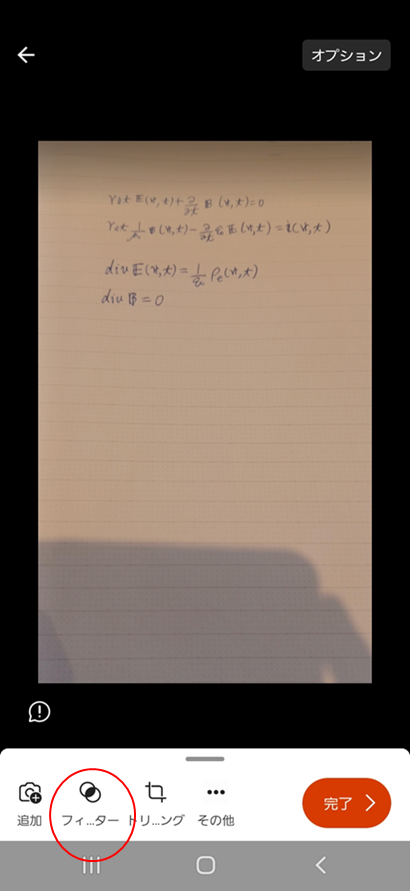 オプション
rot E(r,t)+∂/∂t B(r,t)=0
rot 1/μ₀ B(r,t)-∂/∂t ε₀ E(r,t)=i(r,t)
div E(r,t)=1/ε₀ ρe(r,t)
div B=0
追加
フィ...ター
トリ...ング
その他
完了